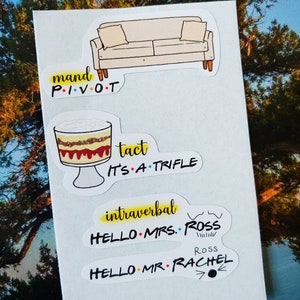 mand
P·I·V·O·T
tact
IT'S·A·TRIFLE
intraverbal
HELLO·MRS·ROSS
ROSS
HELLO·MR·RACHEL